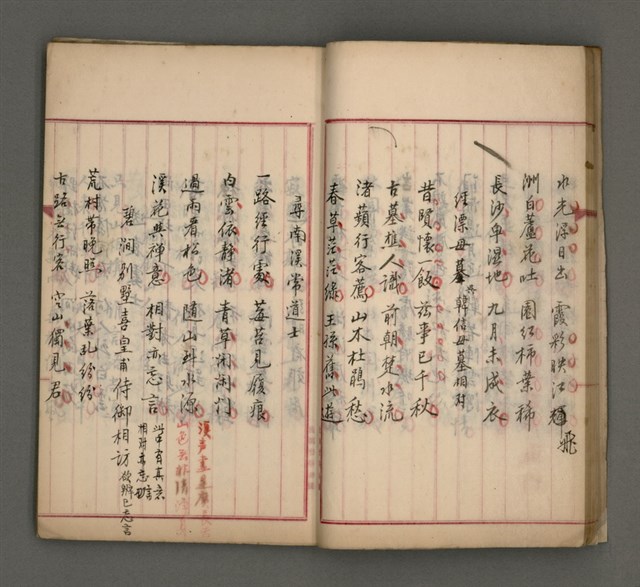 水光浮日出 霞彩映江飛
洲白蘆花吐 園紅柿葉稀
長沙卑濕地 九月未成衣
經漂母墓 韓信母墓相對
昔賢懷一飯 茲事已千秋
古墓樵人識 前朝楚水流
渚蘋行客薦 山木杜鵑愁
春草茫茫綠 王孫舊此遊
尋南溪常道士
一路經行處 莓苔見履痕
白雲依靜渚 青草閉閑門
過雨看松色 隨山到水源
溪花與禪意 相對亦忘言
此中有真意
欲辨已忘言
碧澗別墅喜皇甫侍御相訪
荒村帶晚照 落葉亂紛紛
古路無行客 空山獨見君